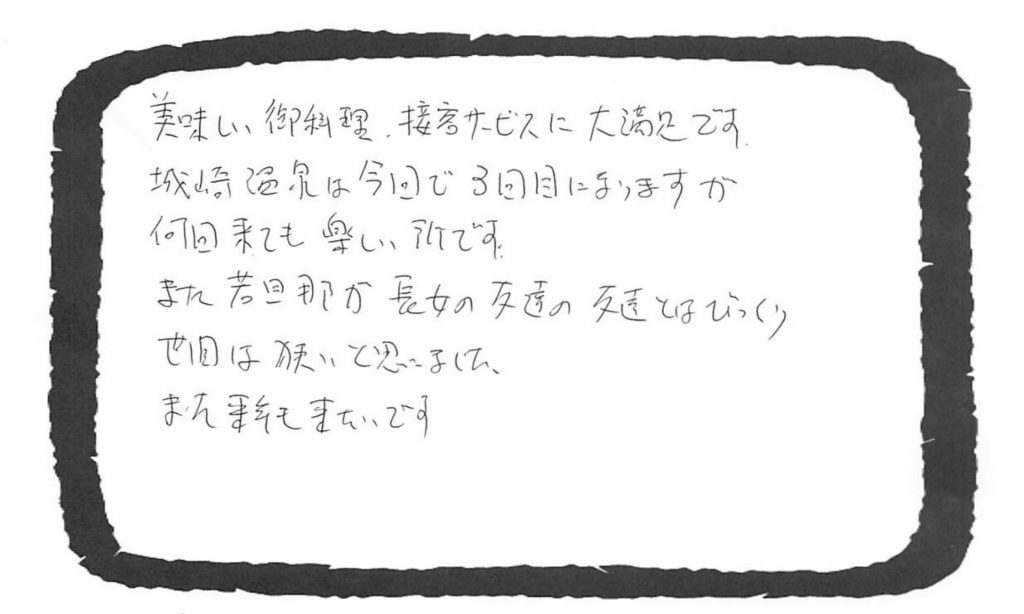 美味しい御料理、接客サービスに大満足です。
城崎温泉は今回で3回目になりますが
何回来ても楽しい所です。
また若旦那が長女の友達の友達とはびっくり
世間は狭いと思いました、
また来年も来たいです